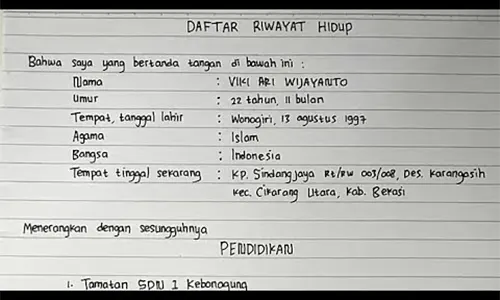 DAFTAR RIWAYAT HIDUP
Bahwa saya yang bertanda tangan di bawah ini :
Nama : VIKI ARI WIJAYANTO
Umur : 22 tahun, 11 bulan
Tempat, tanggal lahir : Wonogiri, 13 agustus 1997
Agama : Islam
Bangsa : Indonesia
Tempat tinggal sekarang : KP. Sindangjaya Rt/Rw 003/008, Des. Karangasih
Kec. Cikarang Utara, Kab. Bekasi
Menerangkan dengan sesungguhnya
PENDIDIKAN
1. Tamatan SDN 1 Kebonagung